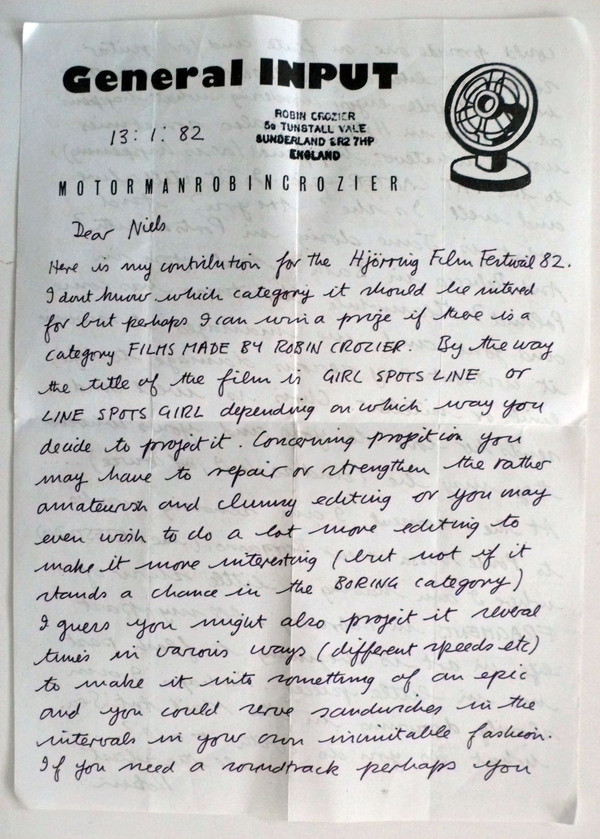 General INPUT
ROBIN CROZIER
5a TUNSTALL VALE
SUNDERLAND SR2 7HP
ENGLAND
13 : 1 : 82
MOTORMANROBINCROZIER
Dear Niels
Here is my contribution for the Hjörring Film Festival 82.
I dont know which category it should be intered
for but perhaps I can win a prize if there is a
category FILMS MADE BY ROBIN CROZIER. By the way
the title of the film is GIRL SPOTS LINE or
LINE SPOTS GIRL depending on which way you
decide to project it. Concerning projection you
may have to repair or strengthen the rather
amateurish and clumsy editing or you may
even wish to do a lot more editing to
make it more interesting (but not if it
stands a chance in the BORING category)
I guess you might also project it several
times in various ways (different speeds etc)
to make it into something of an epic
and you could serve sandwiches in the
intervals in your own inimitable fashion.
If you need a soundtrack perhaps you